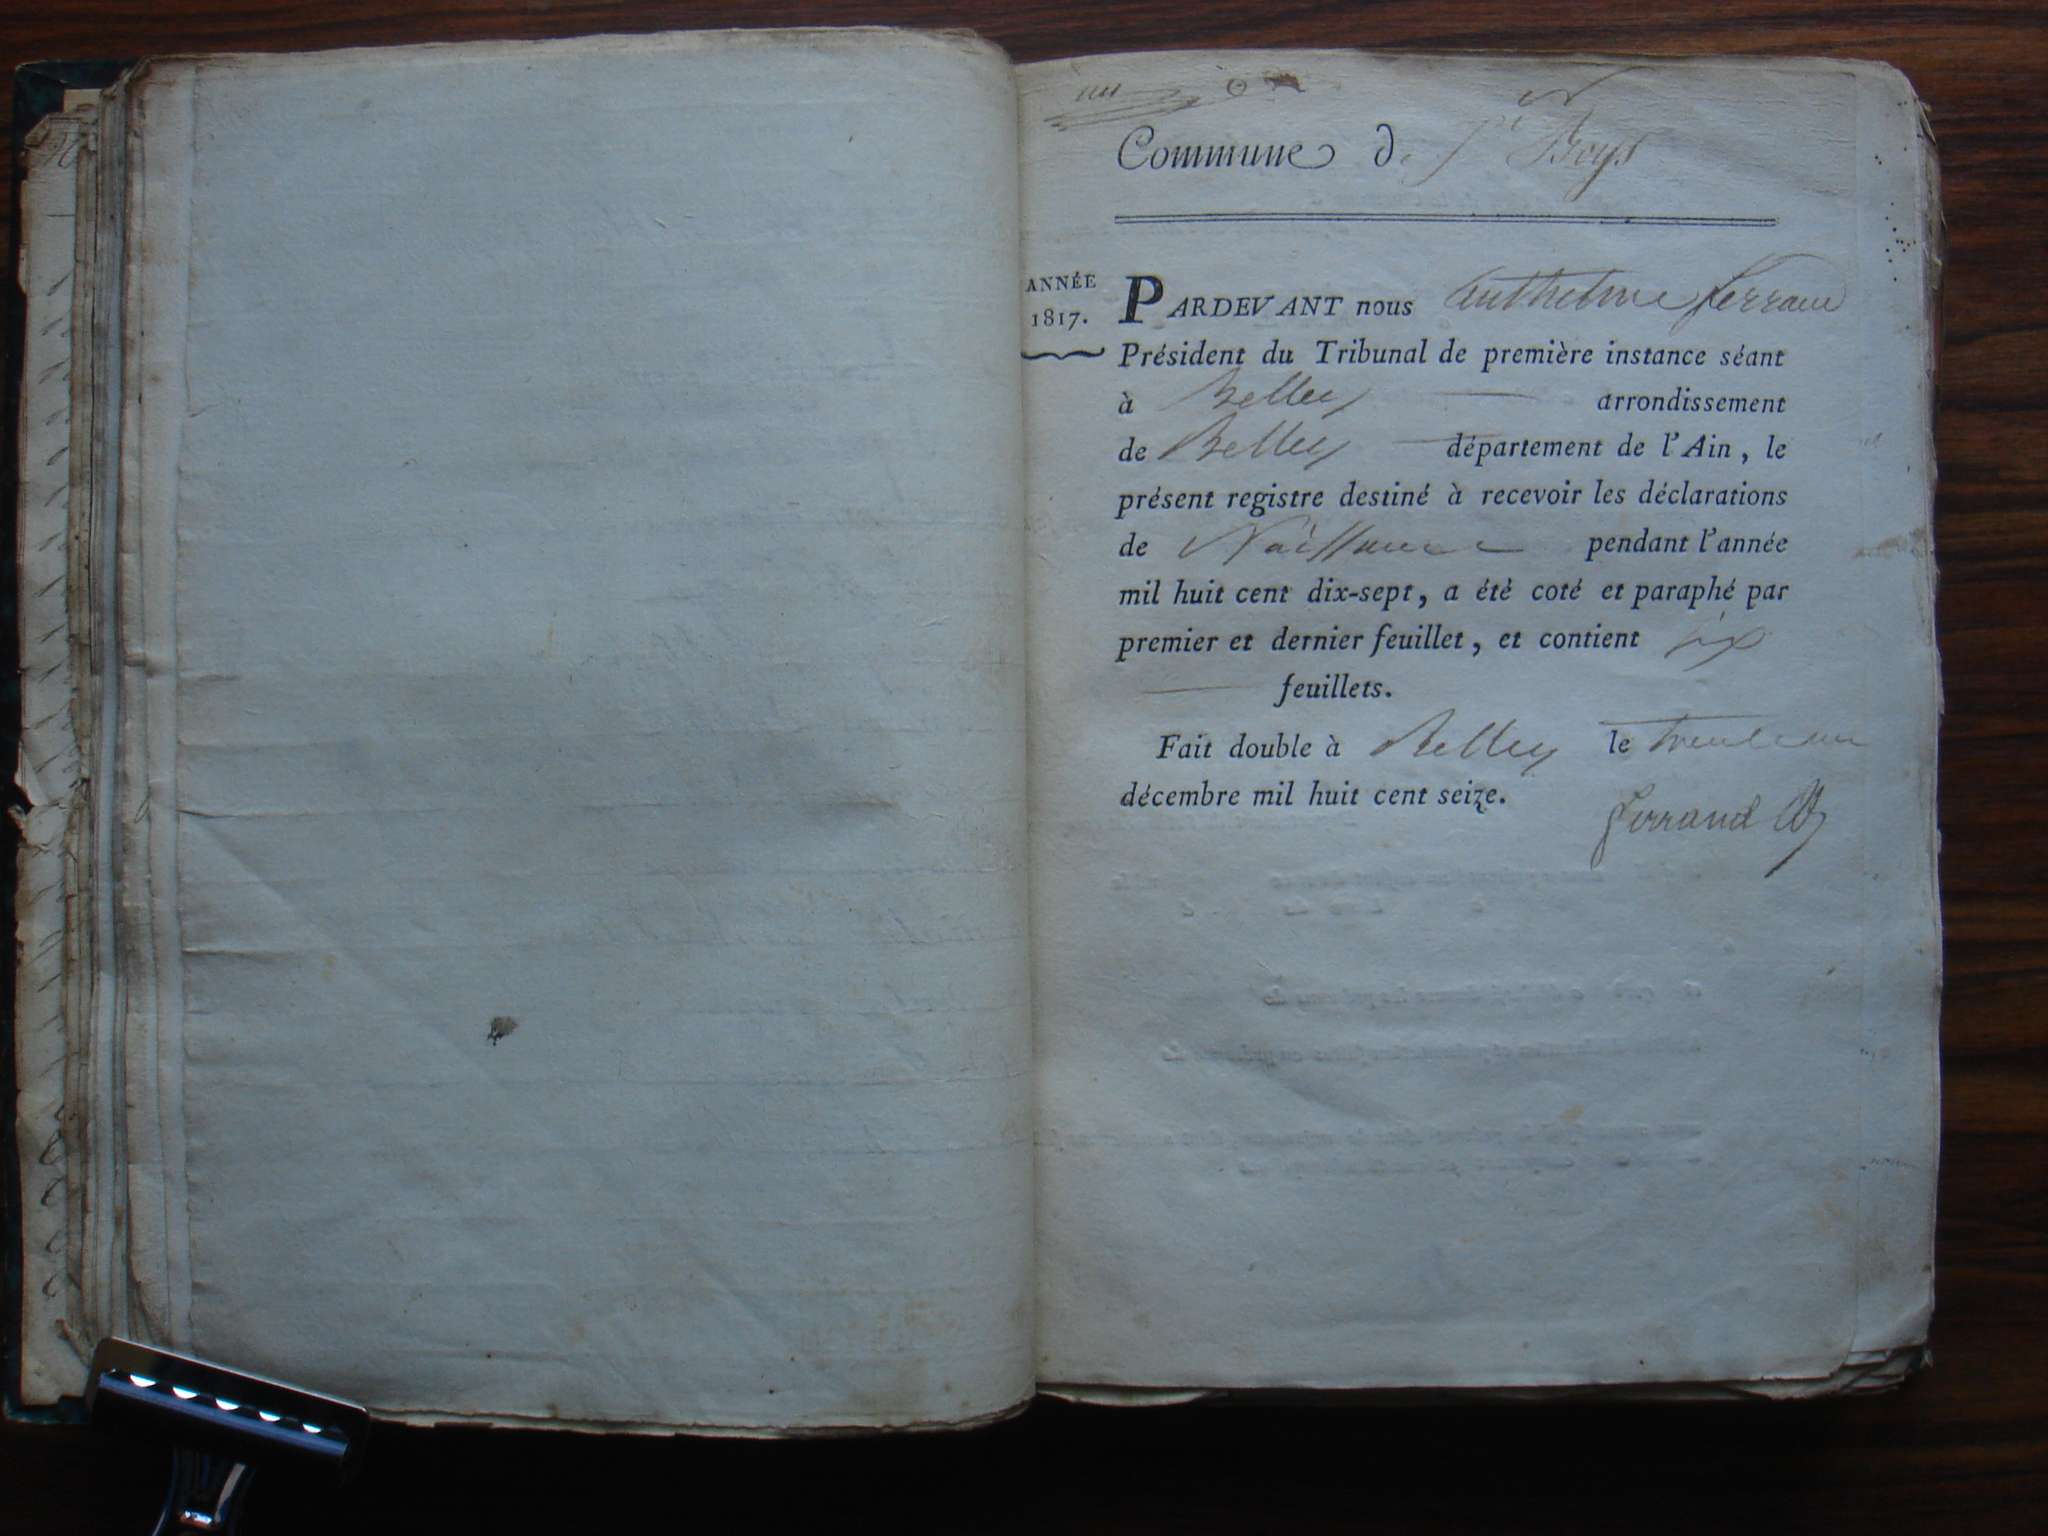 Commune de St Boys
ANNÉE
1817.
PARDEVANT nous Anthelme Ferrand
Président du Tribunal de première instance séant
à Belley arrondissement
de Belley département de l'Ain, le
présent registre destiné à recevoir les déclarations
de Naissance pendant l'année
mil huit cent dix-sept, a été coté et paraphé par
premier et dernier feuillet, et contient six
feuillets.
Fait double à Belley le trente un
décembre mil huit cent seize.
Ferrand